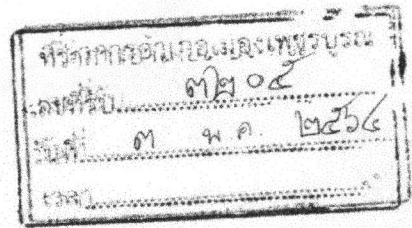 ที่ว่าการอำเภอเมืองเพชรบูรณ์
เลขที่รับ ๓๒๐๕
วันที่ ๓ พ.ค. ๒๕๖๔
เวลา